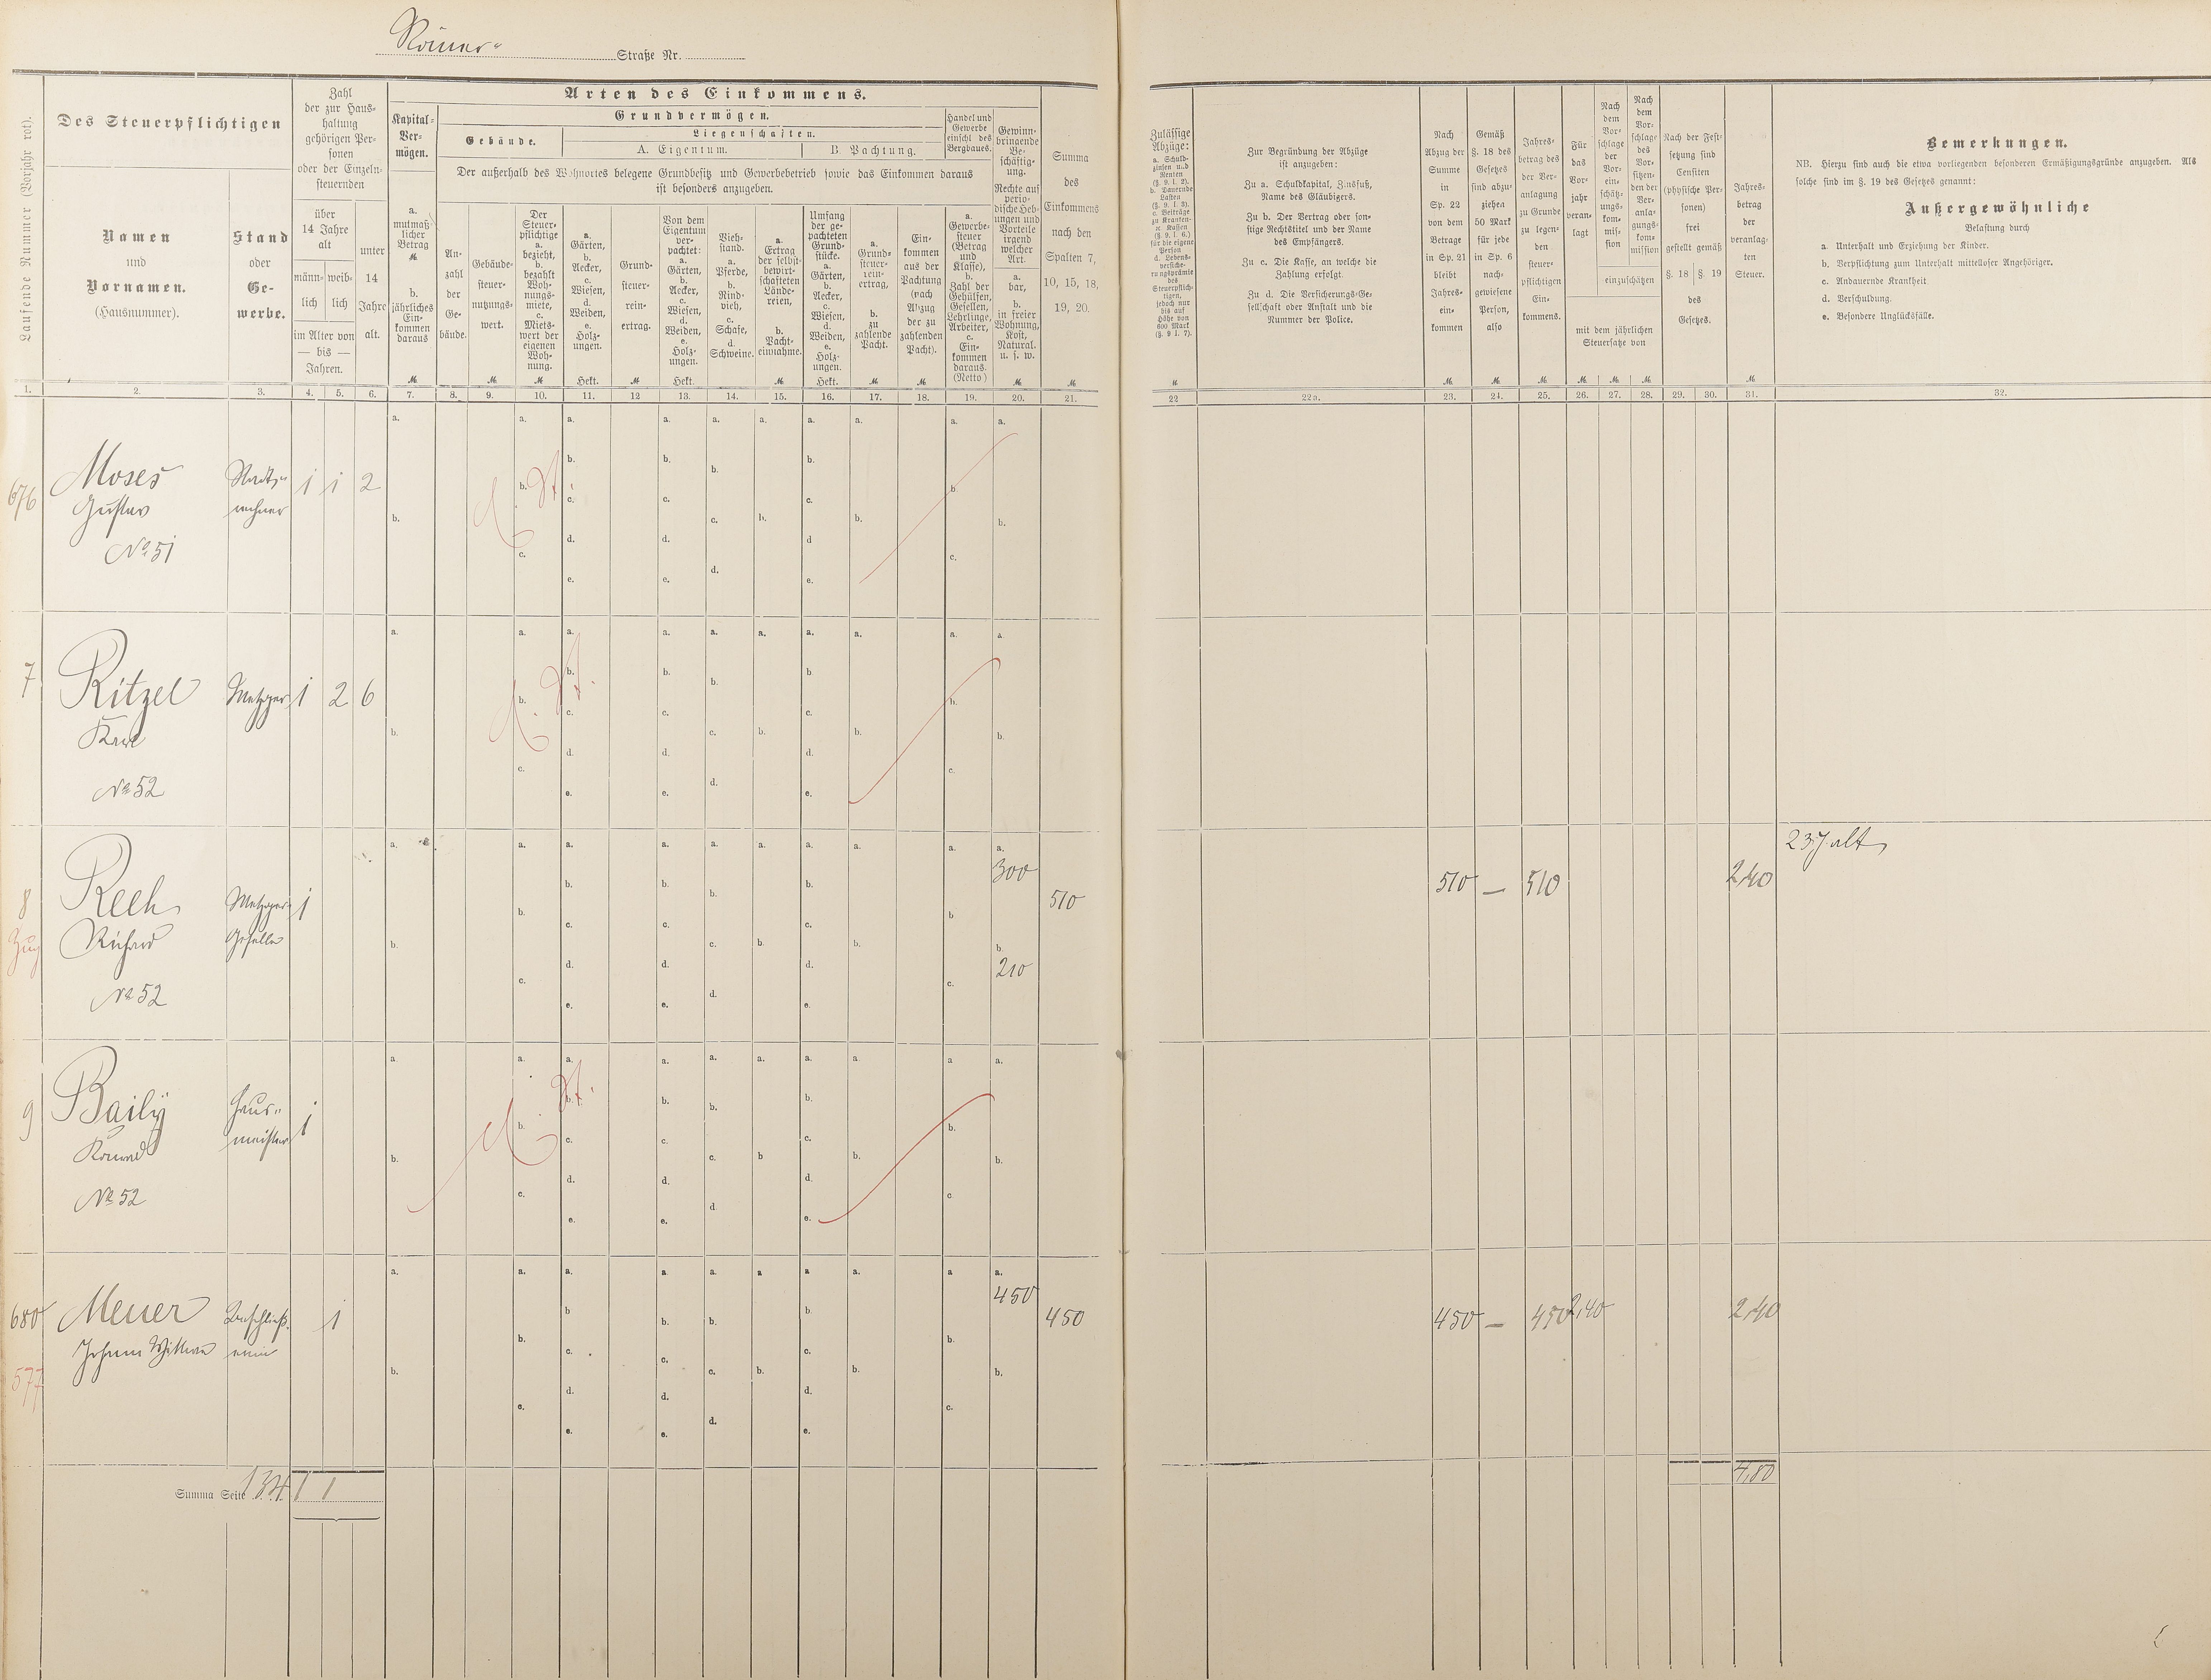 Römer-
Straße Nr.
Laufende Nummer (Vorjahr rot).
Des Steuerpflichtigen
Namen
und
Vornamen.
(Hausnummer).
Stand
oder
Ge-
werbe.
Zahl
der zur Haus-
haltung
gehörigen Per-
sonen
oder der Einzeln-
steuernden
über
14 Jahre
alt
männ-
lich
weib-
lich
im Alter von
— bis —
Jahren.
unter
14
Jahre
alt.
Arten des Einkommens.
Kapital-
Ver-
mögen.
a.
mutmaß-
licher
Betrag
M
b.
jährliches
Ein-
kommen
daraus
M
Grundvermögen.
Gebäude.
Liegenschaften.
A. Eigentum.
B. Pachtung.
Der außerhalb des Wohnortes belegene Grundbesitz und Gewerbebetrieb sowie das Einkommen daraus
ist besonders anzugeben.
An-
zahl
der
Ge-
bäude.
Gebäude-
steuer-
nutzungs-
wert.
M
Der
Steuer-
pflichtige
a.
bezieht,
b.
bezahlt
Woh-
nungs-
miete,
c.
Miets-
wert der
eigenen
Woh-
nung.
M
a.
Gärten,
b.
Aecker,
c.
Wiesen,
d.
Weiden,
e.
Holz-
ungen.
Hekt.
Grund-
steuer-
rein-
ertrag.
M
Von dem
Eigentum
ver-
pachtet:
a.
Gärten,
b.
Aecker,
c.
Wiesen,
d.
Weiden,
e.
Holz-
ungen.
Hekt.
Vieh-
stand.
a.
Pferde,
b.
Rind-
vieh,
c.
Schafe,
d.
Schweine.
a.
Ertrag
der selbst-
bewirt-
schafteten
Lände-
reien,
b.
Pacht-
einnahme.
M
Umfang
der ge-
pachteten
Grund-
stücke.
a.
Gärten,
b.
Aecker,
c.
Wiesen,
d.
Weiden,
e.
Holz-
ungen.
Hekt.
a.
Grund-
steuer-
rein-
ertrag,
b.
zu
zahlende
Pacht.
M
Ein-
kommen
aus der
Pachtung
(nach
Abzug
der zu
zahlenden
Pacht).
M
Handel und
Gewerbe
einschl des
Bergbaues.
a.
Gewerbe-
steuer
(Betrag
und
Klasse),
b.
Zahl der
Gehülfen,
Gesellen,
Lehrlinge,
Arbeiter,
c.
Ein-
kommen
daraus.
(Netto)
Gewinn-
bringende
Be-
schäftig-
ung.
Rechte auf
perio-
dische Heb-
ungen und
Vorteile
irgend
welcher
Art.
a.
bar,
b.
in freier
Wohnung,
Kost,
Natural.
u. s. w.
M
Summa
des
Einkommens
nach den
Spalten 7,
10, 15, 18,
19, 20.
M
Zulässige
Abzüge:
a. Schuld-
zinsen und
Renten
(§. 9. I. 2).
b. Dauernde
Lasten
(§. 9. I. 3).
c. Beiträge
zu Kranken-
2c Kassen
(§. 9. I. 6.)
für die eigene
Person
d. Lebens-
versiche-
rungsprämie
des
Steuerpflich-
tigen,
jedoch nur
bis auf
Höhe von
600 Mark
(§. 9 I. 7).
M
Zur Begründung der Abzüge
ist anzugeben:
Zu a. Schuldkapital, Zinsfuß,
Name des Gläubigers.
Zu b. Der Vertrag oder son-
stige Rechtstitel und der Name
des Empfängers.
Zu c. Die Kasse, an welche die
Zahlung erfolgt.
Zu d. Die Versicherungs-Ge-
sellschaft oder Anstalt und die
Nummer der Police.
Nach
Abzug der
Summe
in
Sp. 22
von dem
Betrage
in Sp. 21
bleibt
Jahres-
ein-
kommen
M
Gemäß
§. 18 des
Gesetzes
sind abzu-
ziehen
50 Mark
für jede
in Sp. 6
nach-
gewiesene
Person,
also
M
Jahres-
betrag des
der Ver-
anlagung
zu Grunde
zu legen-
den
steuer-
pflichtigen
Ein-
kommens.
M
Für
das
Vor-
jahr
veran-
lagt
Nach
dem
Vor-
schlage
der
Vor-
ein-
schätz-
ungs-
kom-
mis-
sion
Nach
dem
Vor-
schlage
des
Vor-
sitzen-
den der
Ver-
anla-
gungs-
kom-
mission
einzuschätzen
mit dem jährlichen
Steuersatze von
M M M
Nach der Fest-
setzung sind
Censiten
(physische Per-
sonen)
frei
gestellt gemäß
§. 18 §. 19
des
Gesetzes.
Jahres-
betrag
der
veranlag-
ten
Steuer.
M
Bemerkungen.
NB. Hierzu sind auch die etwa vorliegenden besonderen Ermäßigungsgründe anzugeben. Als
solche sind im §. 19 des Gesetzes genannt:
Außergewöhnliche
Belastung durch
a. Unterhalt und Erziehung der Kinder.
b. Verpflichtung zum Unterhalt mittelloser Angehöriger.
c. Andauernde Krankheit
d. Verschuldung.
e. Besondere Unglücksfälle.
1. 2. 3. 4. 5. 6. 7. 8. 9. 10. 11. 12 13. 14. 15. 16. 17. 18. 19. 20. 21. 22 22a. 23. 24. 25. 26. 27. 28. 29. 30. 31. 32.
676 Moses 1 1 2
Gustav
No 51
7 Ritzel Metzger 1 2 6
Karl
No 52
8 Rech Metzger- 1 300 510 510 — 510 2,40 23 J alt
Zug Richard Geselle 210
No 52
9 Baily Haus- 1
Konrad meister
No 52
680 Meuer Beschließ- 1 450 450 450 — 450 2,40 2,40
Johann Wittwe erin
577
Summa Seite 134. 1 1 4,80